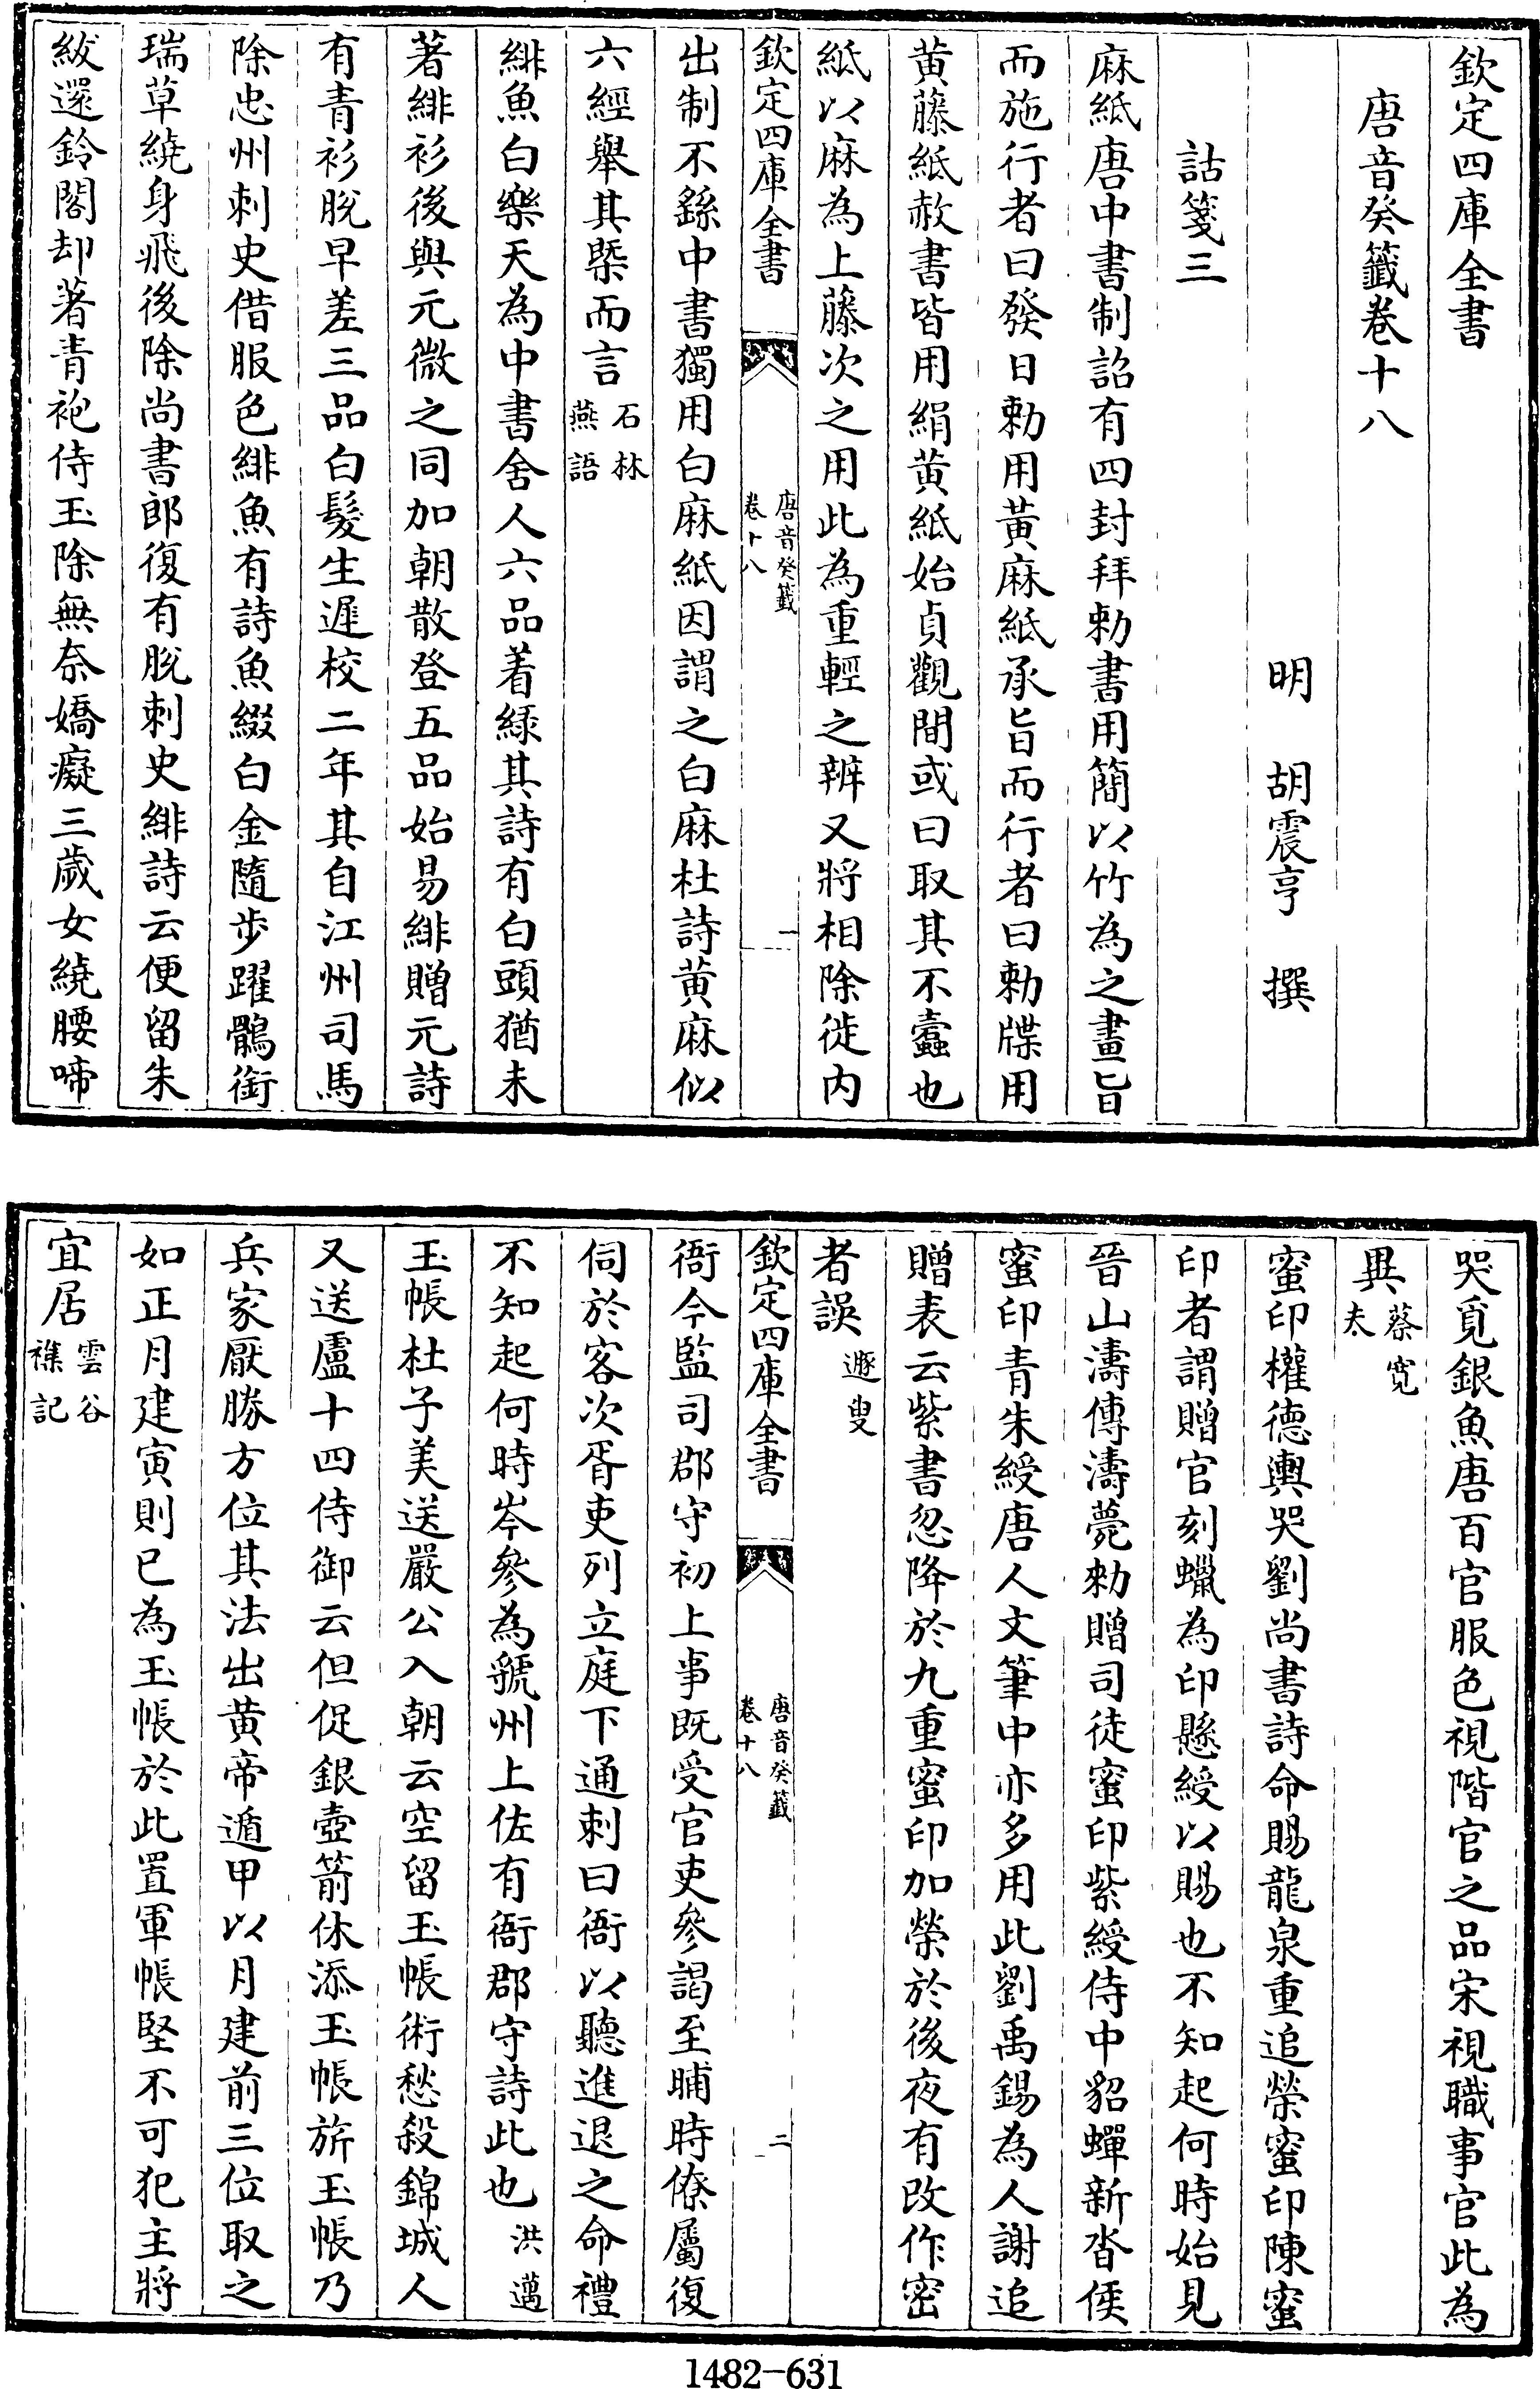 欽定四庫全書
唐音癸籤卷十八
明　胡震亨　撰
詁箋三
麻紙唐中書制詔有四封拜勅書用簡以竹為之畫旨
而施行者曰發日勅用黃麻紙承旨而行者曰勅牒用
黄藤紙赦書皆用絹黄紙始貞觀間或曰取其不蠹也
紙以麻為上藤次之用此為重輕之辨又將相除徙内
欽定四庫全書
唐音癸籤
卷十八
一
出制不繇中書獨用白麻紙因謂之白麻杜詩黄麻似
六經舉其槩而言石林燕語
緋魚白樂天為中書舍人六品着緑其詩有白頭猶未
著緋衫後與元微之同加朝散登五品始易緋贈元詩
有青衫脫早差三品白髮生遲校二年其自江州司馬
除忠州刺史借服色緋魚有詩魚綴白金隨步躍鶻銜
瑞草繞身飛後除尚書郎復有脫刺史緋詩云便留朱
紱還鈴閣却著青袍侍玉除無奈嬌癡三歲女繞腰啼
哭覓銀魚唐百官服色視階官之品宋視職事官此為
異蔡寬夫
蜜印權德輿哭劉尚書詩命賜龍泉重追榮蜜印陳蜜
印者謂贈官刻蠟為印懸綬以賜也不知起何時始見
晉山濤傳濤薨勅贈司徒蜜印紫綬侍中貂蟬新沓侯
蜜印青朱綬唐人文筆中亦多用此劉禹錫為人謝追
贈表云紫書忽降於九重蜜印加榮於後夜有改作密
者誤遯叟
欽定四庫全書
唐音癸籤
卷十八
二
衙今監司郡守初上事既受官吏參謁至晡時僚屬復
伺於客次胥吏列立庭下通刺曰衙以聽進退之命禮
不知起何時岑參為虢州上佐有衙郡守詩此也洪邁
玉帳杜子美送嚴公入朝云空留玉帳術愁殺錦城人
又送盧十四侍御云但促銀壺箭休添玉帳旂玉帳乃
兵家厭勝方位其法出黄帝遁甲以月建前三位取之
如正月建寅則已為玉帳於此置軍帳堅不可犯主將
宜居雲谷襍記
1482-631